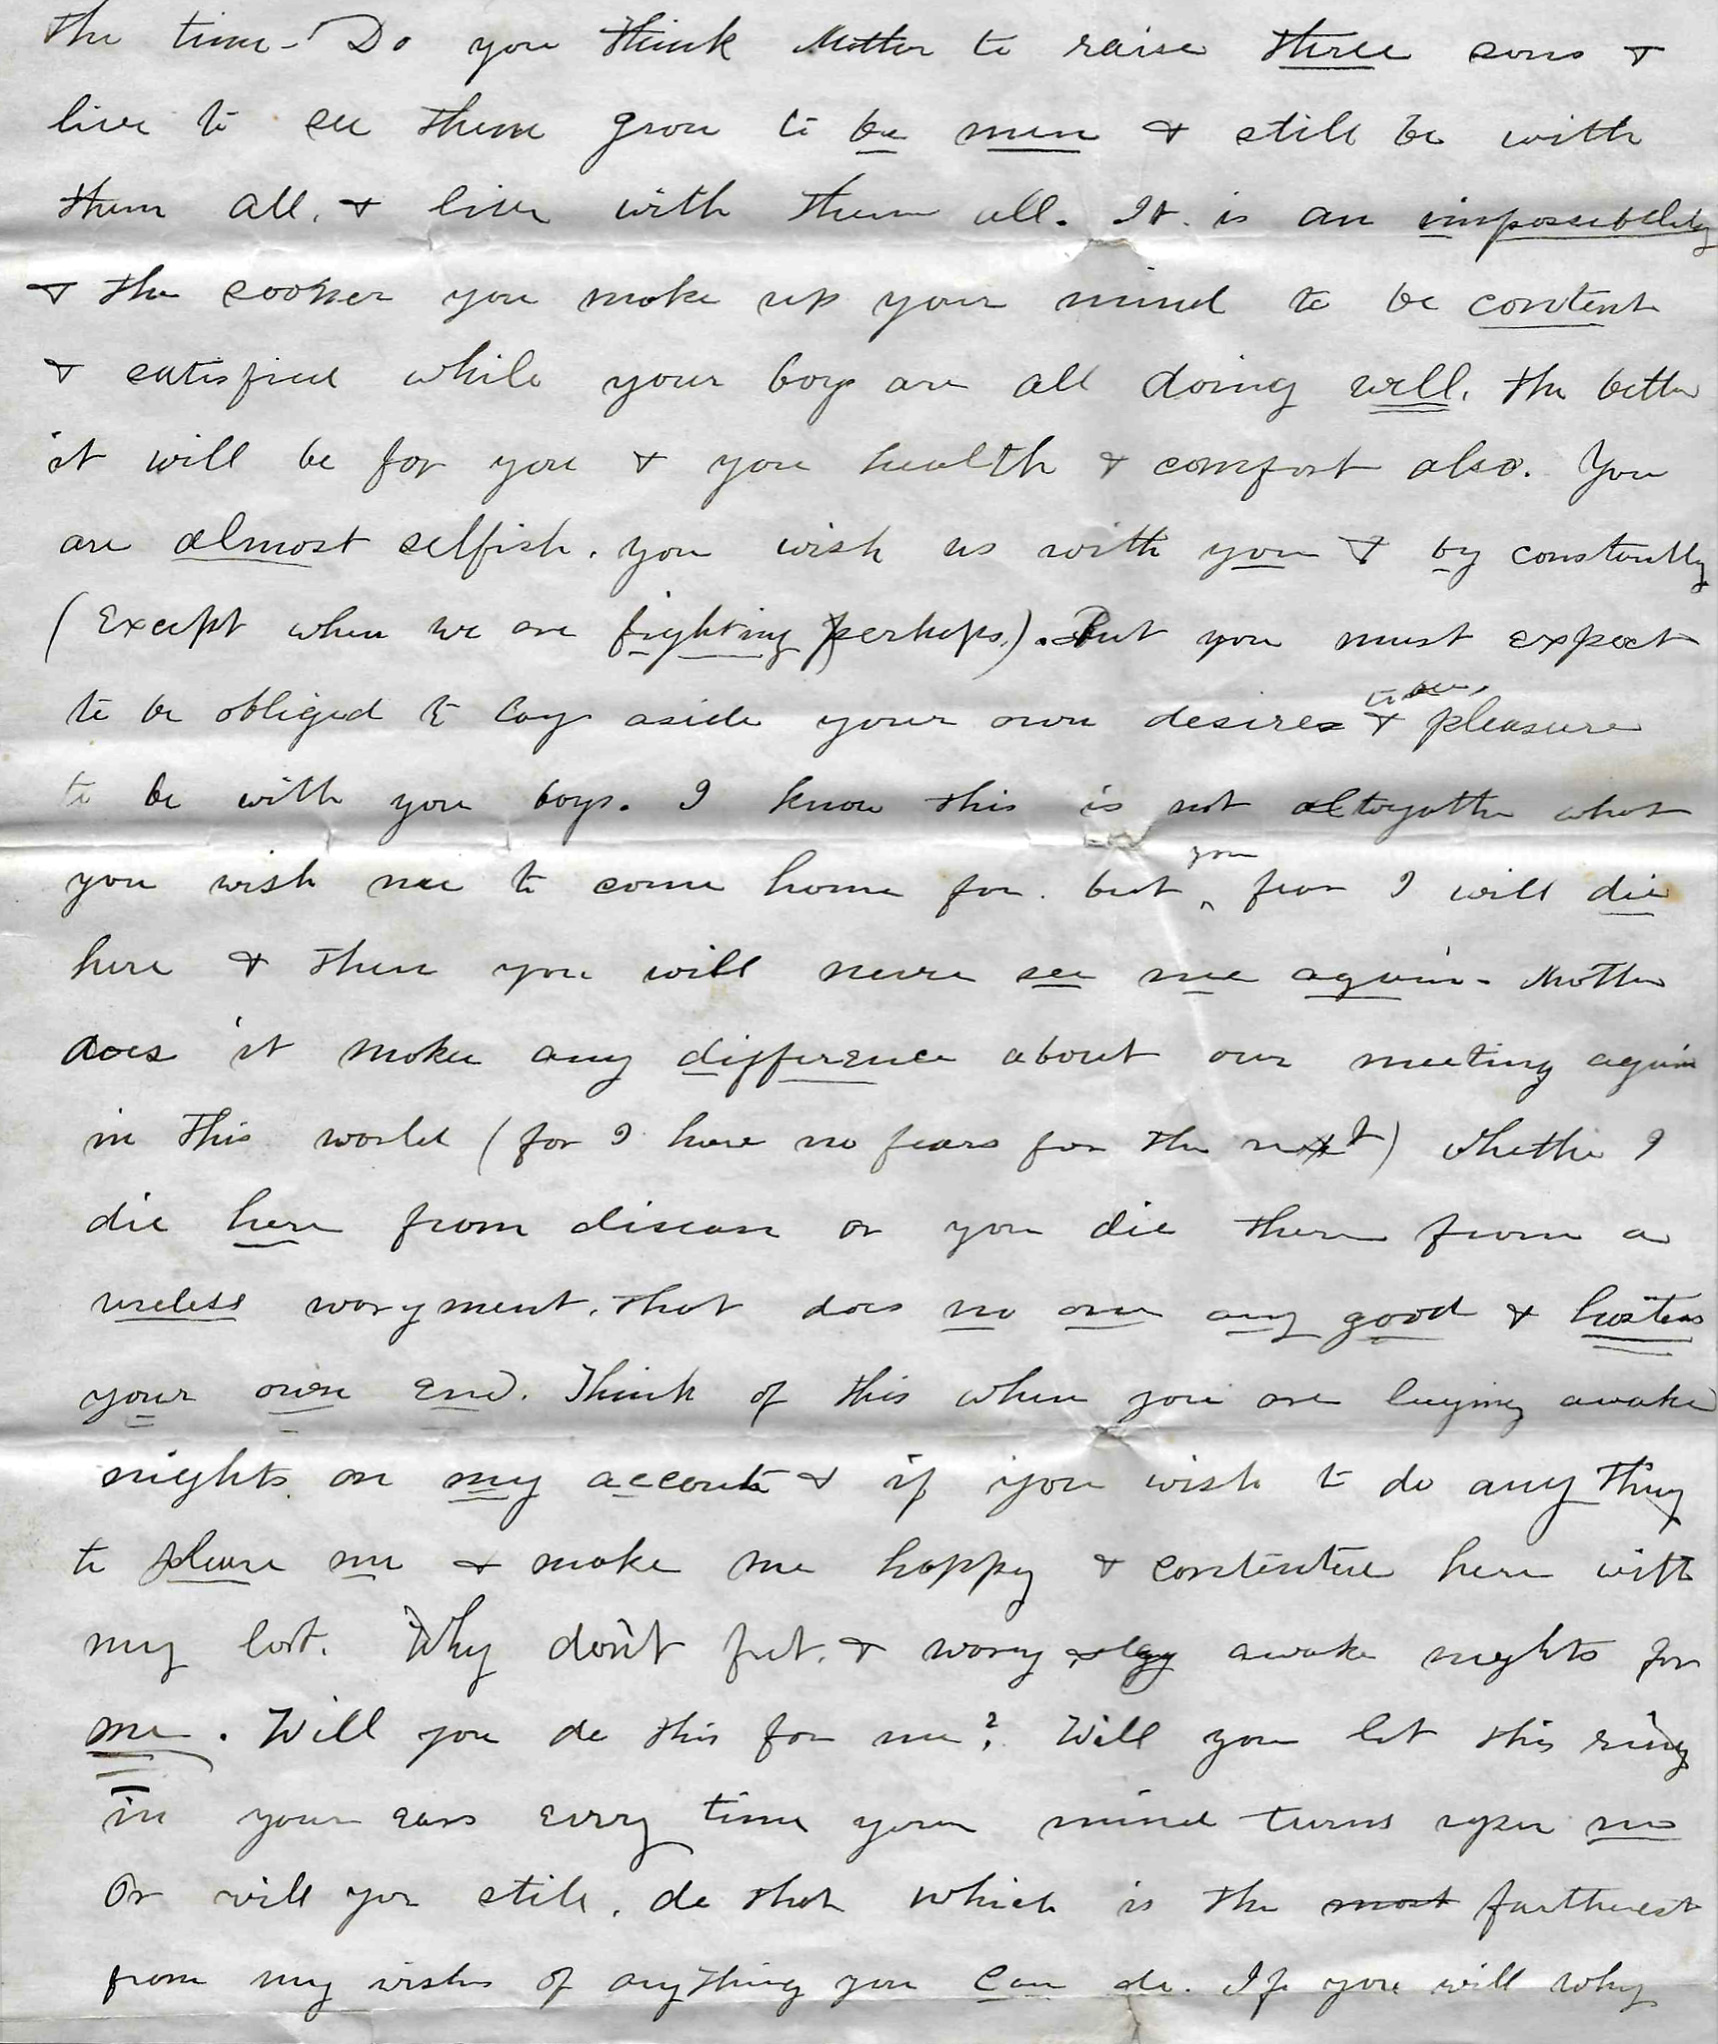 the time - Do you think Mother to raise three sons &
live to see them grow to be men & still be with
them all, & live with them all. It is an impossibility
& the sooner you make up your mind to be content
& satisfied while your boys are all doing well, the better
it will be for you & you health & comfort also. You
are almost selfish. you wish us with you & by constantly
(Except when we are fighting perhaps.). But you must expect
to be obliged to lay aside your own desires & pleasure
to be with you boys. I know this is not altogether what
you wish me to come home for. but you fear I will die
here & then you will never see me again - Mother
does it make any difference about our meeting again
in this world (for I have no fears for the next) whether I
die here from disease or you die there from a
useless worryment. that does no one any good & hastens
your own end. Think of this when you are laying awake
nights on my account & if you wish to do any thing
to please me & make me happy & contented here with
my lot. Why don't fret. & worry & lay awake nights for
me. Will you do this for me? Will you let this ring
in your ears every time your mind turns upon me
Or will you still, do that which is the most furtherest
from my wishes of anything you can do. If you will why